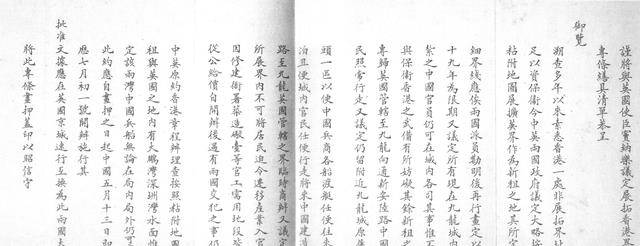 謹將與英國使臣竇納樂議定展拓香港
專條繕具清單恭呈
御覽
溯查多年以來素悉香港一處非展拓界址
足以資保衛今中英兩國政府議定大略按
粘附地圖展擴英界作為新租之地其所定
細界綫應俟兩國派員勘明後再行畫定以
十九年為限期又議定所有現在九龍城內
紥之中國官員仍可在城內各司其事惟不
與保衛香港之武備有所妨礙其餘新租之
專歸英國管轄至九龍向通新安陸路中國
民照常行走又議定仍留附近九龍城原舊
頭一區以便中國兵商各船渡艇任便往來
泊且便城內官民任便行走將來中國建造
路至九龍英國管轄之界臨時商辦又議定
所展界內不可將居民迫令遷移產業入官
因修建衙署築造礮臺等官工需用地段皆
從公給價自開辦後遇有兩國交犯之事仍
中英原約香港章程辦理查按照粘附地圖
租與英國之地內有大鵬灣深圳灣水面惟
定該兩灣中國兵船無論在局內局外仍可
此約應自畫押之日起中國五月十三日即
應七月初一號開辦施行其
批准文據應在英國京城速行互換為此兩國大
將此專條畫押蓋印以昭信守